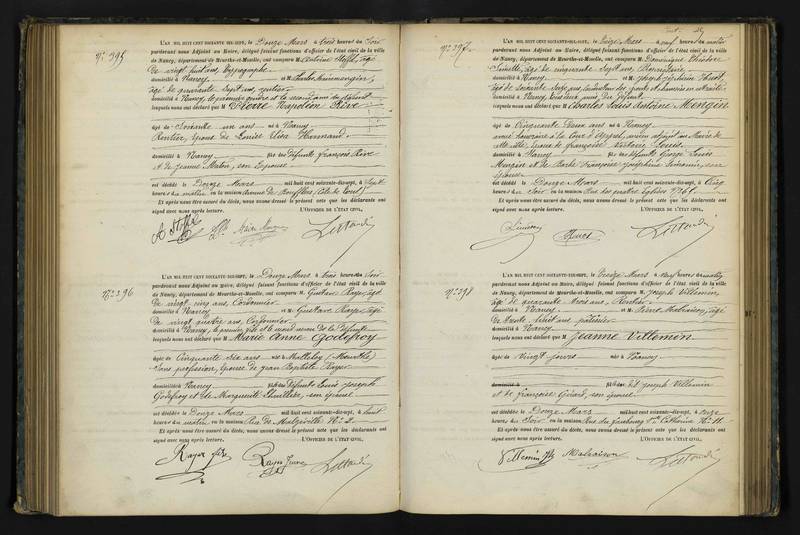 N° 395
L'AN MIL HUIT CENT SOIXANTE-DIX-SEPT, le Douze Mars à trois heures du Soir
pardevant nous Adjoint au Maire, délégué faisant fonctions d'officier de l'état civil de la ville
de Nancy, département de Meurthe-et-Moselle, ont comparu M. Antoine Steffel, âgé
de vingt huit ans, Typographe
domicilié à Nancy et M.
âgé de quarante Sept ans, rentier
domicilié à Nancy, le premier gendre et le second ami du défunt
lesquels nous ont déclaré que M Pierre Napoléon Rive
âgé de Soixante un ans né à Nancy
Rentier, époux de Louise Elisa Hannand
domicilié à Nancy fils des défunts François Rive
et de Jeanne Matin, son Epouse
est décédé le Douze Mars mil huit cent soixante-dix-sept, à Sept
heures du matin en la maison, Avenue de Boufflers
Et après nous être assuré du décès, nous avons dressé le présent acte que les déclarants ont
signé avec nous après lecture. L'OFFICIER DE L'ÉTAT CIVIL,
N° 396
L'AN MIL HUIT CENT SOIXANTE-DIX-SEPT, le Douze Mars à trois heures du Soir
pardevant nous Adjoint au Maire, délégué faisant fonctions d'officier de l'état civil de la ville
de Nancy, département de Meurthe-et-Moselle, ont comparu M. Gustave Rayer, âgé
de vingt cinq ans, Cordonnier
domicilié à Nancy et M Gustave Rayer, âgé
de vingt quatre ans, Cordonnier
domicilié à Nancy, le premier fils et le second neveu de la Défunte
lesquels nous ont déclaré que M Marie Anne Godefroy
âgée de Cinquante Six ans née à (Meurthe)
Sans profession, épouse de Jean Baptiste Rayer
domiciliée à Nancy fille des défunts Louis Joseph
Godefroy et de Marguerite Thuillier, son épouse
est décédée le Douze Mars mil huit cent soixante-dix-sept, à huit
heures du matin, en la maison Rue de Malzéville N° 2
Et après nous être assuré du décès, nous avons dressé le présent acte que les déclarants ont
signé avec nous après lecture. L'OFFICIER DE L'ÉTAT CIVIL,
Rayer fils
Rayer
N° 397
L'AN MIL HUIT CENT SOIXANTE-DIX-SEPT, le Treize Mars à neuf heures du matin
pardevant nous Adjoint au Maire, délégué faisant fonctions d'officier de l'état civil de la ville
de Nancy, département de Meurthe-et-Moselle, ont comparu M. Dominique Théodore
âgé de cinquante Sept ans
domicilié à Nancy et M. Joseph
âgé de Soixante Seize ans, Conducteur des ponts et chaussées en retraite
domicilié à Nancy, tous deux amis du défunt
lesquels nous ont déclaré que M Charles Louis Antoine Mengin
âgé de Cinquante Deux ans né à Nancy
avoué honoraire à la Cour d'Appel, ancien adjoint au Maire de
cette ville, époux de françoise Victorine Louis
domicilié à Nancy fils des défunts George Louis
Mengin et de Barbe Françoise Joséphine son
épouse
est décédé le Douze Mars mil huit cent soixante-dix-sept, à Cinq
heures du Soir en la maison Rue des quatre églises N° 61
Et après nous être assuré du décès, nous avons dressé le présent acte que les déclarants ont
signé avec nous après lecture. L'OFFICIER DE L'ÉTAT CIVIL,
N° 398
L'AN MIL HUIT CENT SOIXANTE-DIX-SEPT, le Treize Mars à neuf heures du matin
pardevant nous Adjoint au Maire, délégué faisant fonctions d'officier de l'état civil de la ville
de Nancy, département de Meurthe-et-Moselle, ont comparu M. Joseph Villemin
âgé de quarante trois ans, Rentier
domicilié à Nancy et M Pierre Malraison, âgé
de trente huit ans pâtissier
domicilié à Nancy
lesquels nous ont déclaré que M Jeanne Villemin
âgée de Vingt jours née à Nancy
domicilié à fille du dit Joseph Villemin
et de françoise Gérard, son épouse
est décédée le Douze Mars mil huit cent soixante-dix-sept, à onze
heures du Soir, en la maison Rue du faubourg Ste Catherine N° 11
Et après nous être assuré du décès, nous avons dressé le présent acte que les déclarants ont
signé avec nous après lecture. L'OFFICIER DE L'ÉTAT CIVIL,
Villemin Malraison